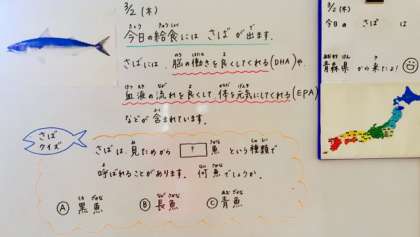 3/2 (木)
今日の給食には さばが 出ます。
さばには、脳の働きを良くしてくれる(DHA)や
血液の流れを良くして 体を元気にしてくれる(EPA)
などが 含まれています。
さば
クイズ
さばは 見ためから ? 魚 という種類で
呼ばれることがあります。何魚でしょうか。
Ⓐ 黒魚 Ⓑ 長魚 Ⓒ 青魚
3/2 (木)
今日の さば は
青森県から来たよ!